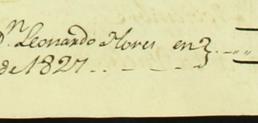 Dn Leonardo Flores en 3
de 1827